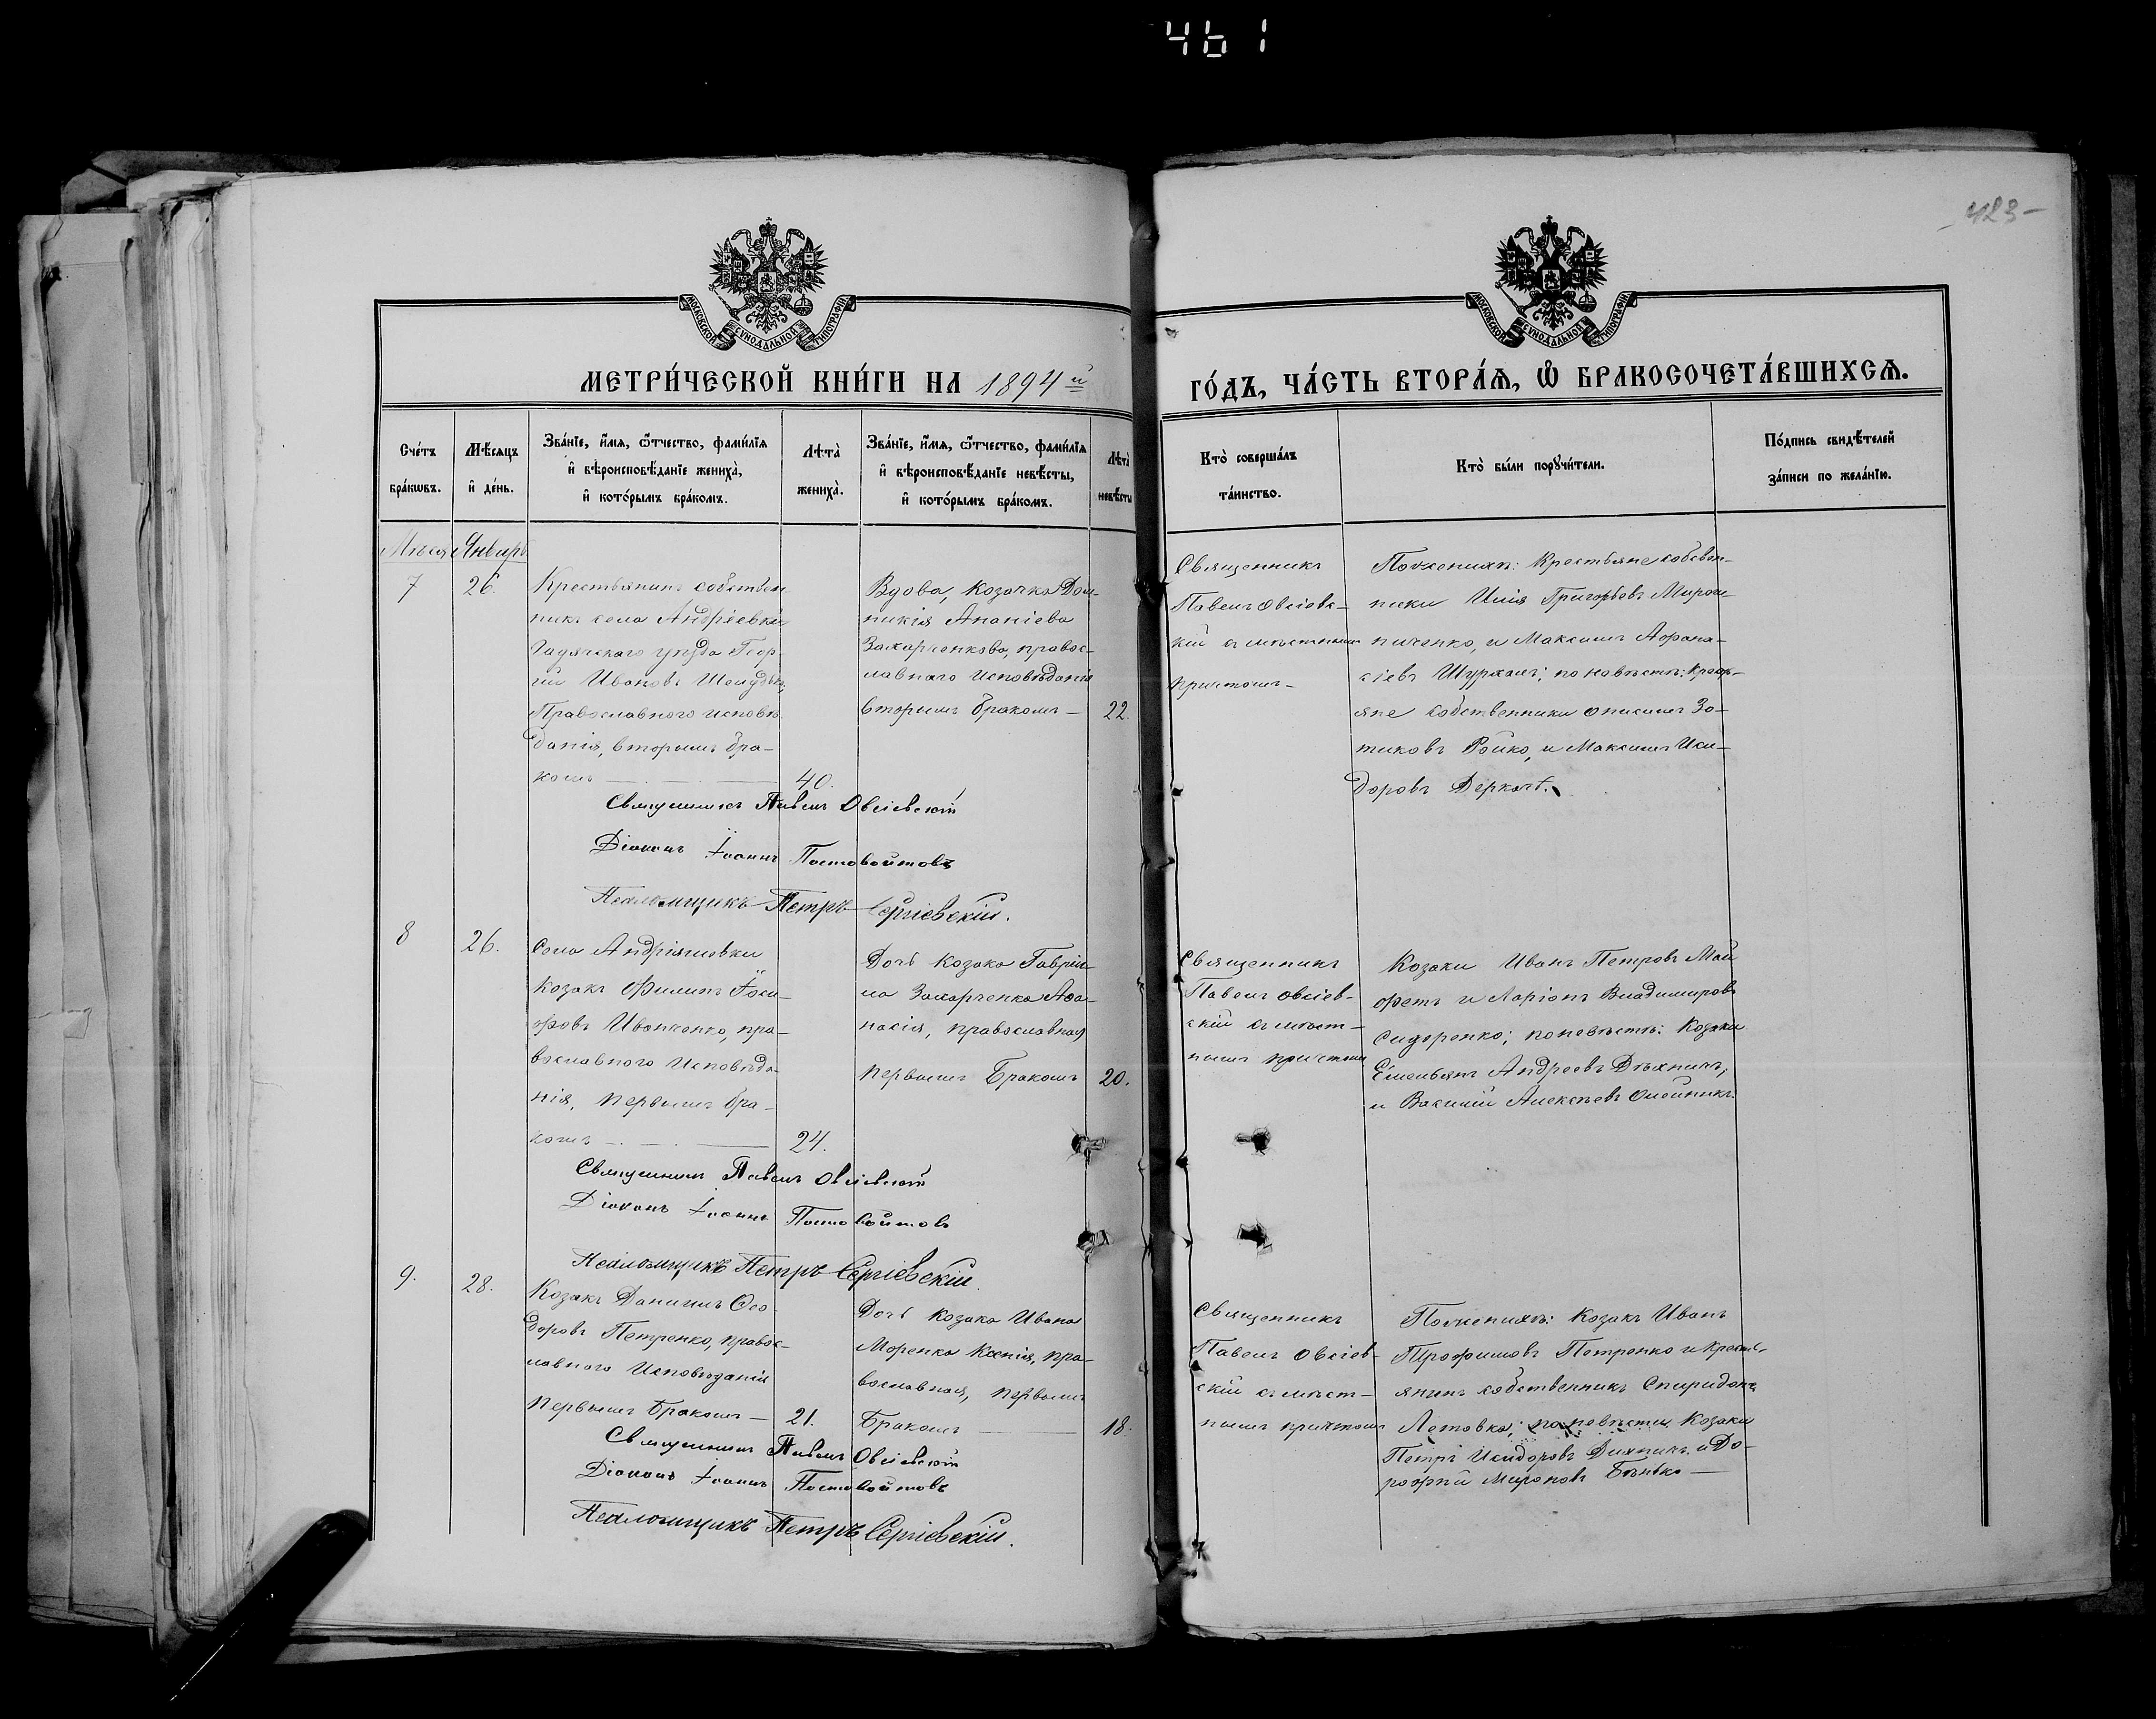 461
423-
МОСКОВСКОЙ СѴНОДАЛЬНОЙ ТИПОГРАФІИ
МОСКОВСКОЙ СѴНОДАЛЬНОЙ ТИПОГРАФІИ
МЕТРИ́ЧЕСКОЙ КНИ́ГИ НА 1894й
ГО́ДЪ, ЧА́СТЬ ВТОРА́Я, Ѡ БРАКОСОЧЕТА́ВШИХСЯ.
Сче́тъ бра́кѡвъ.
Мѣ́сяцъ и де́нь.
Зва́нїе, и́мя, ѻ́тчество, фами́лїя
и вѣроисповѣ́данїе жениха̀,
и кото́рымъ бра́комъ.
Лѣта̀ жениха̀.
Зва́нїе, и́мя, ѻ́тчество, фами́лїя
и вѣроисповѣ́данїе невѣ́сты,
и кото́рымъ бра́комъ.
Лѣта̀ невѣ́сты
Кто̀ соверша́лъ
та́инство.
Кто̀ бы́ли порꙋчи́тели.
По́дпись свидѣ́телей
за́писи по жела́нїю.
Январь
7
26.
Крестьянинъ собствен-
никъ села Андріевки
Гадячского уѣзда Геор-
гій Ивановъ
Православнаго исповѣ-
данія, вторымъ бра-
комъ
40.
Вдова, Козачка Дом-
никія Ананіева
Захарченкова, правос-
лавнаго исповѣданія
вторымъ бракомъ
22.
Священникъ
Павелъ Овсіевс-
кій съ мѣстнымъ
причтомъ
По женихѣ: Крестьяне собствен-
ники Илія Григорьевъ Мирош-
ниченко, и Максимъ Афана-
сіевъ по невѣстѣ: Кресть-
яне собственники Онисимъ Зо-
тиковъ Бойко, и Максимъ Иси-
доровъ Деркачъ.
Священникъ Павелъ Овсіевскій
Діаконъ Іоаннъ Постовойтовъ
Псаломщикъ Петръ Сергіевскій.
8
26.
Села Андріяшовки
Козакъ Филипъ Іоси-
фовъ Иванченко, пра-
вославнаго исповѣда-
нія, первымъ бра-
комъ
24.
Дочь козака Гаврии-
ла Захарченка Афа-
насія, православная
первымъ бракомъ
20.
Священникъ
Павелъ Овсіев-
скій съ мѣст-
нымъ причтомъ
Козаки Иванъ Петровъ Май-
фетъ и Ларіонъ Владимировъ
Сидоренко; по невѣстѣ: Козаки
Емельянъ Андреевъ Дѣхничъ,
и Василій Алексѣевъ Олейникъ.
Священникъ Павелъ Овсіевскій
Діаконъ Іоаннъ Постовойтовъ
Псаломщикъ Петръ Сергіевскій.
9.
28.
Козакъ Даниилъ Ѳео-
доровъ Петренко, правос-
лавнаго исповѣданія
первымъ бракомъ
21.
Дочь козака Ивана
Моренка Ксенія, пра-
вославная, первымъ
бракомъ
18.
Священникъ
Павелъ Овсіев-
скій съ мѣст-
нымъ причтомъ
По женихѣ: Козакъ Иванъ
Трофимовъ Петренко и кресть-
янинъ собственникъ Спиридонъ
по невѣсти Козаки
Петръ Исидоровъ и До-
рофей Мироновъ
Священникъ Павелъ Овсіевскій
Діаконъ Іоаннъ Постовойтовъ
Псаломщикъ Петръ Сергіевскій.